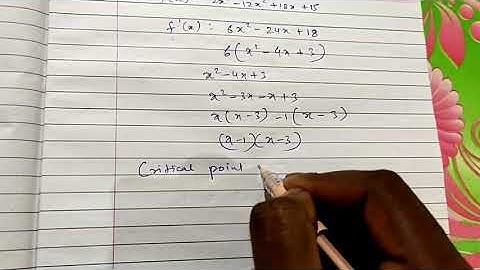 2x³ - 12x² + 18x + 15
f'(x) : 6x² - 24x + 18
6(x² - 4x + 3)
x² - 4x + 3
x² - 3x - x + 3
x(x - 3) - 1(x - 3)
(x - 1)(x - 3)
Critical point